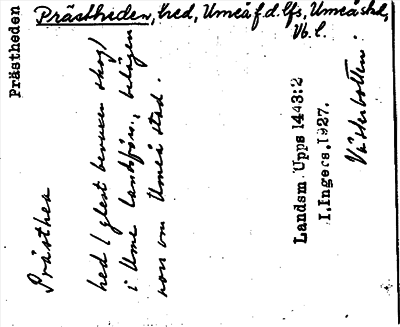 Prästheden
Prästheden, hed, Umeå f.d. lfs, Umeå stad,
Vb. l.
Prästhea
hed (glest bevuxen skog)
i Ume landsförs., belägen
norr om Umeå stad.
Landsm. Upps 1443:2
I. Ingers. 1927.
Västerbotten.